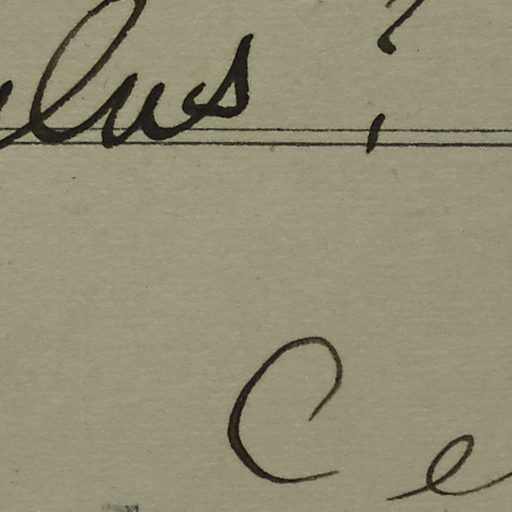 lus ?
Ce